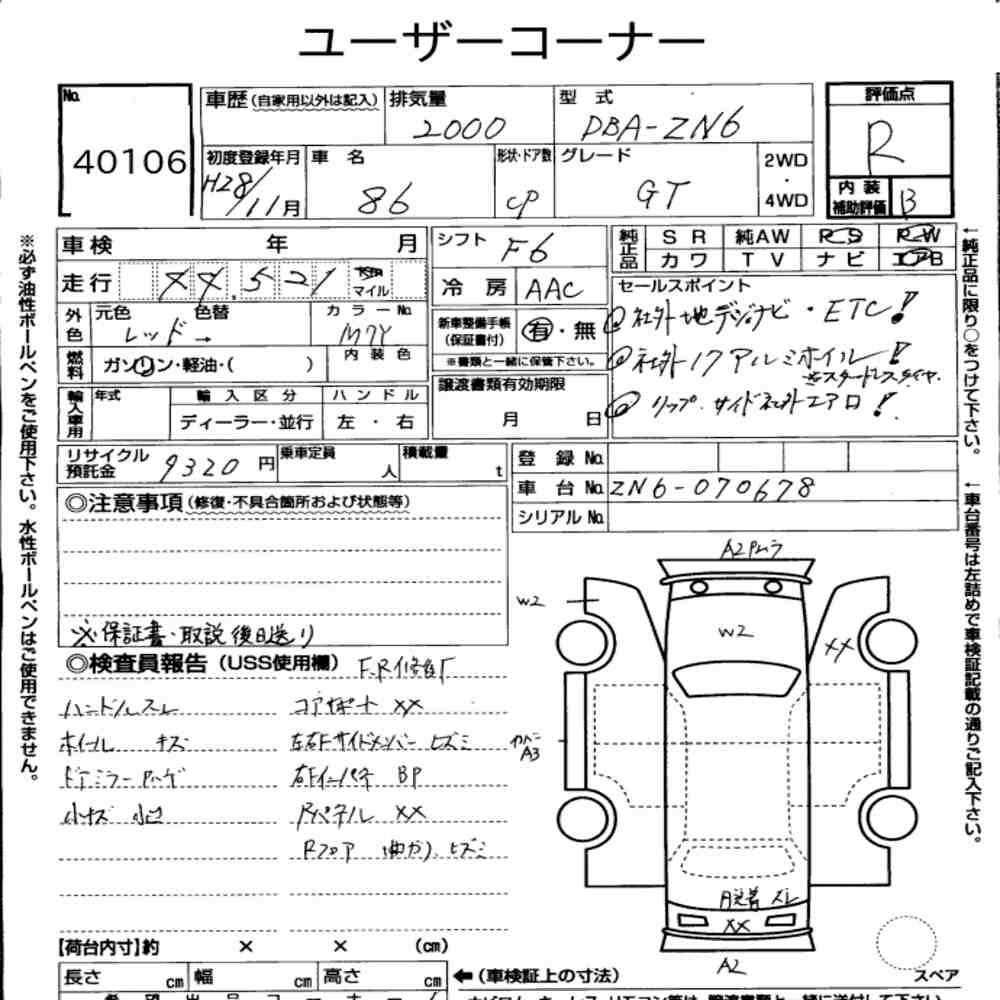 ユーザーコーナー
No. 40106
車歴(自家用以外は記入) 排気量 2000 型式 DBA-ZN6
評価点 R
初度登録年月 H28/11月 車名 86 形状・ドア数 CP グレード GT 2WD・4WD
内装補助評価 B
車検 年 月
走行 44,521 Km マイル
シフト F6
冷房 AAC
純正品 SR 純AW PS PW
カワ TV ナビ エアB
外色 元色 レッド→ 色替 カラーNo. M7Y
燃料 ガソリン・軽油・( ) 内装色
新車整備手帳(保証書付) 有・無
※書類と一緒に保管下さい。
譲渡書類有効期限 月 日
セールスポイント
① 社外地デジナビ・ETC!
② 社外17アルミホイール!
※スタッドレスタイヤ.
③ リップ.サイド社外エアロ!
輸入車用 年式 輸入区分 ディーラー・並行 ハンドル 左・右
リサイクル預託金 9320円 乗車定員 人 積載量 t
登録No.
車台No. ZN6-070678
シリアルNo.
◎注意事項(修復・不具合箇所および状態等)
※保証書・取説 後日送り
◎検査員報告(USS使用欄) F.R修復
ハンドルスレ コアサポート XX
ホイール キズ 左右Fサイドメンバー ヒズミ
ドアミラー ハゲ 右Fインパネ BP
小キズ 小凹 Rパネル XX
Rフロア 曲がり、ヒズミ
A2Pムラ
W2
W2
XX
カバー A3
XX
A2
スペア
【荷台内寸】約 × × (cm)
長さ cm 幅 cm 高さ cm
←(車検証上の寸法)
※必ず油性ボールペンをご使用下さい。水性ボールペンはご使用できません。
←純正品に限り○をつけて下さい。
←車台番号は左詰めで車検証記載の通りご記入下さい。